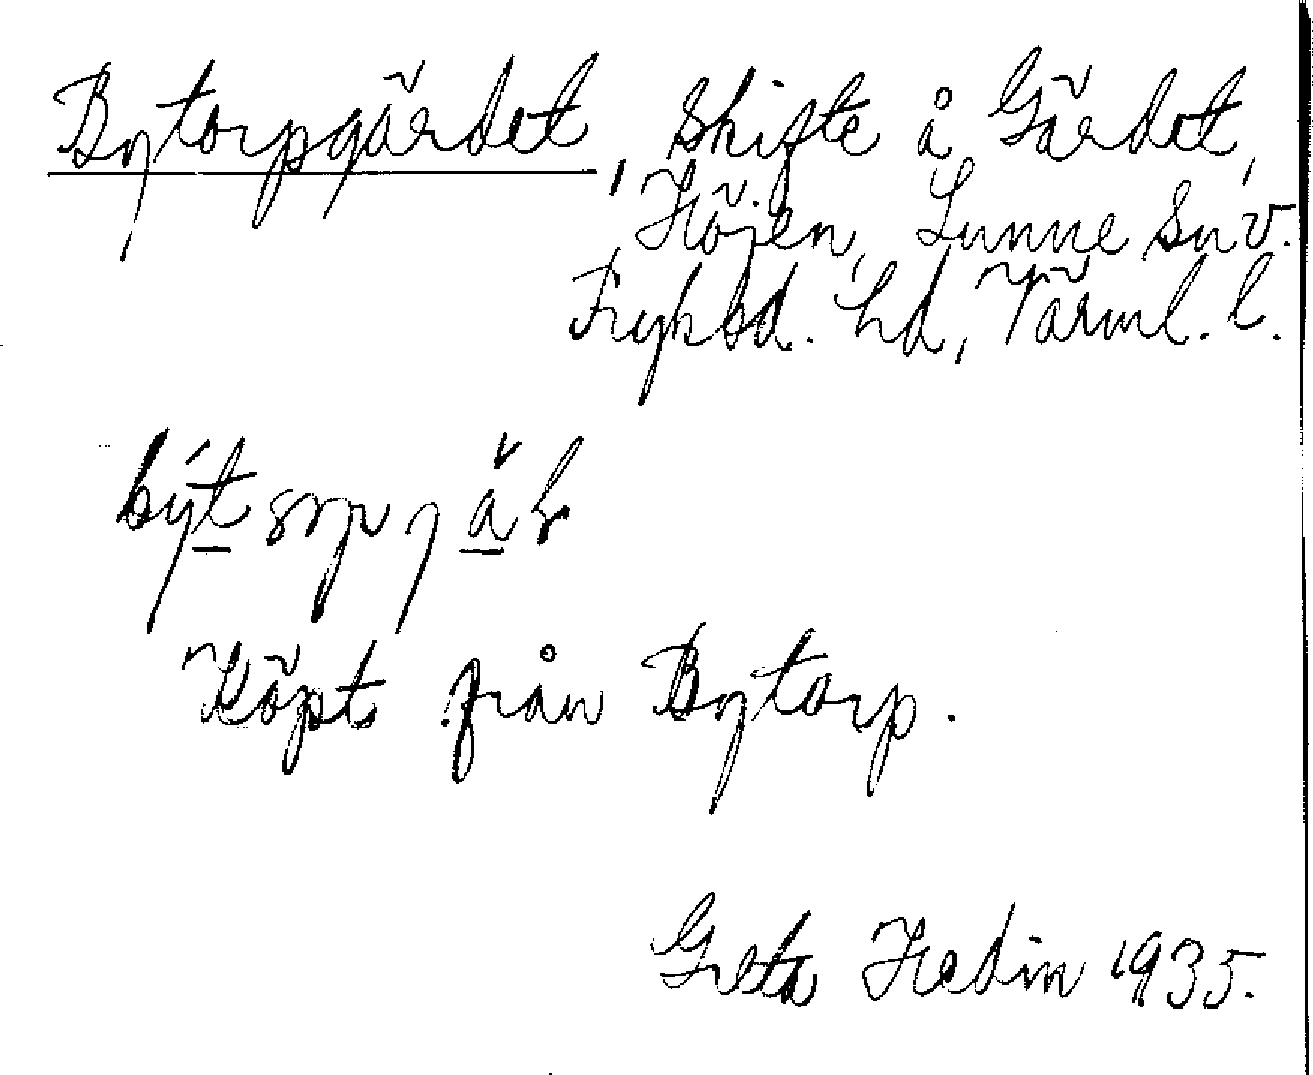 Bytorpgärdet, Skifte å Gärdet,
Höjen, Sunne Sn v.
Fryksd. hd, Värml. l.
Köpts från Bytorp.
Greta Hedin 1935.